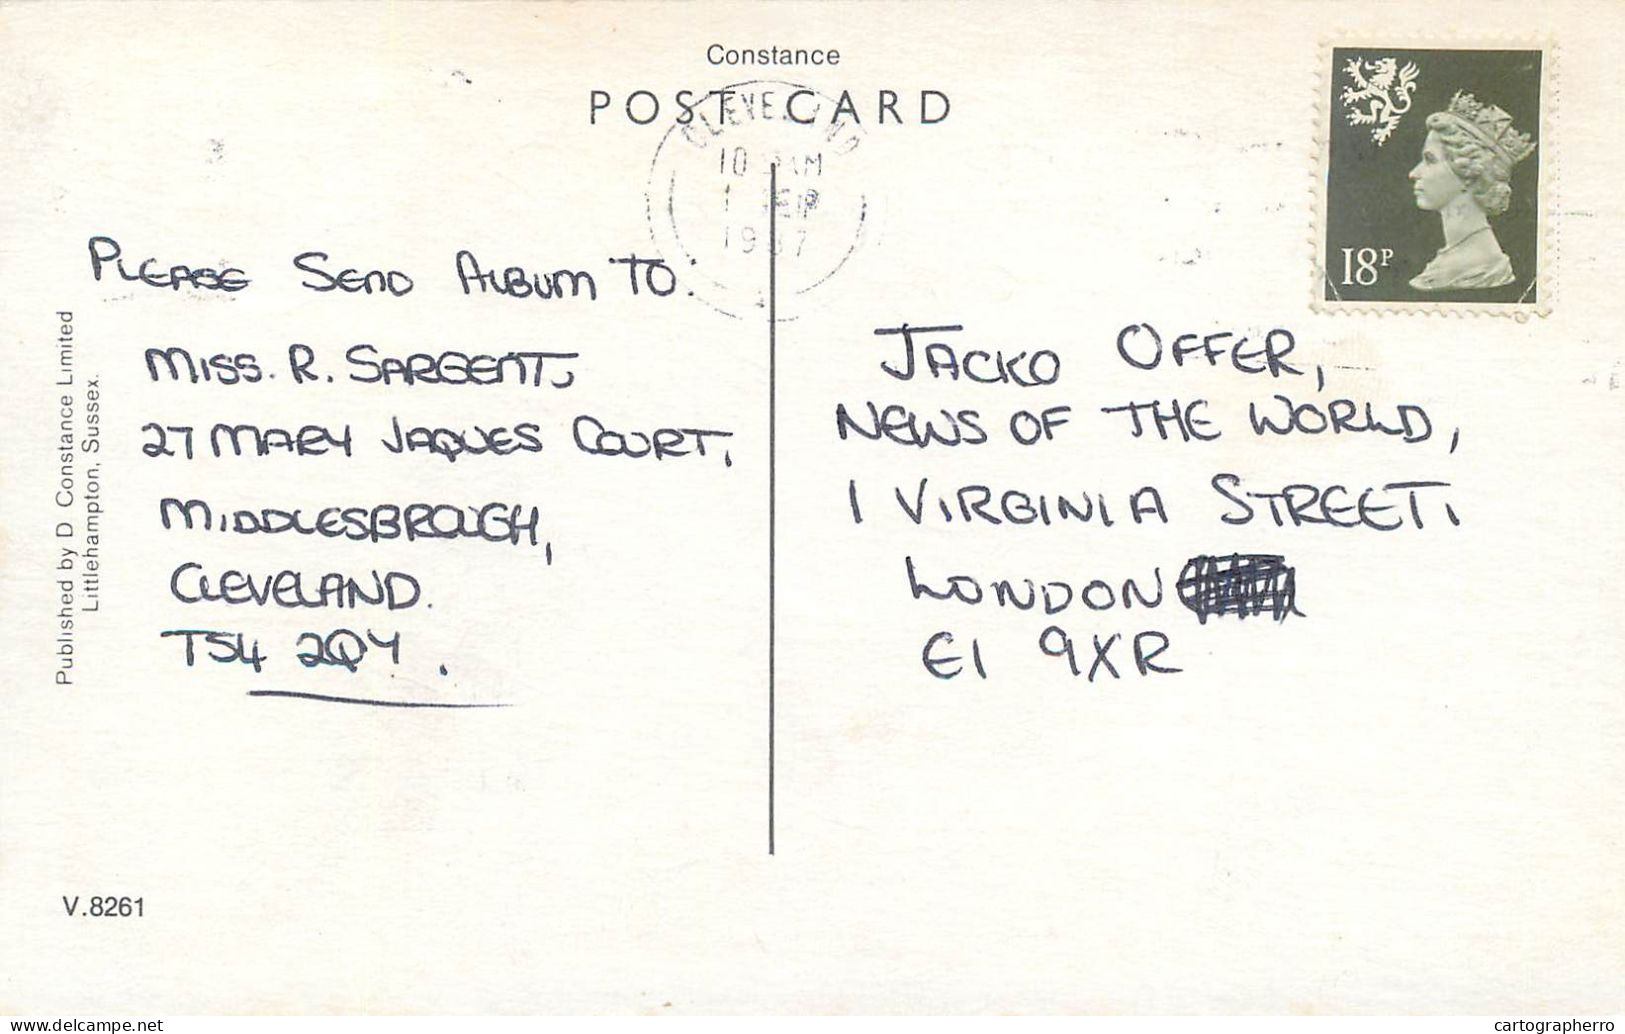 Constance
POST CARD
CLEVELAND
10 AM
1 SEP
1987
18P
PLEASE SEND ALBUM TO:
MISS. R. SARGENT,
27 MARY JAQUES COURT,
MIDDLESBROUGH,
CLEVELAND.
TS4 2QY.
JACKO OFFER,
NEWS OF THE WORLD,
1 VIRGINIA STREET,
LONDON
E1 9XR
Published by D Constance Limited
Littlehampton, Sussex.
V.8261
www.delcampe.net
cartographerro